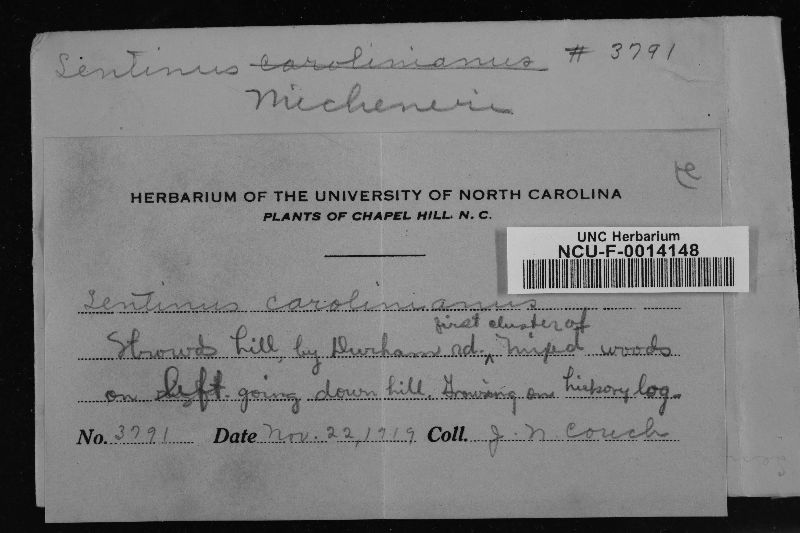 Lentinus carolinianus # 3791
Micheneri
HERBARIUM OF THE UNIVERSITY OF NORTH CAROLINA
PLANTS OF CHAPEL HILL, N. C.
UNC Herbarium
NCU-F-0014148
Lentinus carolinianus
first cluster of
Strowds hill, by Durham rd. ^ mixed woods
on left going down hill. Growing on hickory log.
No. 3791 Date Nov. 22, 1919 Coll. J. N Couch